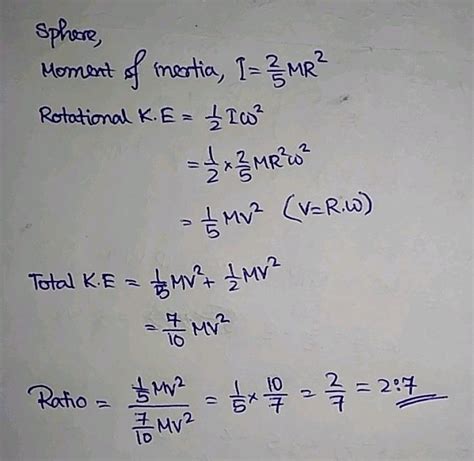 Sphere,
Moment of inertia, I = 2/5 MR²
Rotational K.E = 1/2 Iω²
= 1/2 × 2/5 MR²ω²
= 1/5 MV² (V=R.ω)
Total K.E = 1/5 MV² + 1/2 MV²
= 7/10 MV²
Ratio = (1/5 MV²)/(7/10 MV²) = 1/5 × 10/7 = 2/7 = 2:7